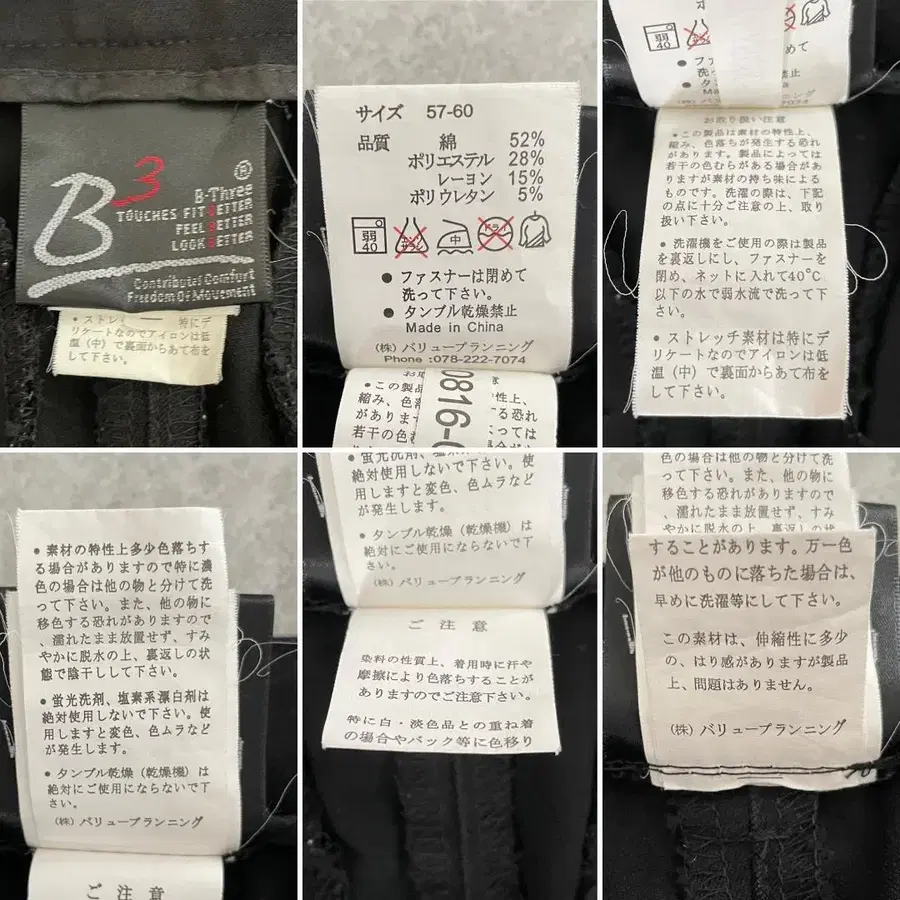 B3
®
B-Three
TOUCHES FIT BETTER
FEEL BETTER
LOOK BETTER
Contributel Comfort
Freedom Of Movement
特にデ
リケートなのでアイロンは低
温（中）で裏面からあて布を
して下さい。
サイズ 57-60
品質 綿 52%
ポリエステル 28%
レーヨン 15%
ポリウレタン 5%
弱
40
中
ドライ
● ファスナーは閉めて
洗って下さい。
● タンブル乾燥禁止
Made in China
（株）バリュープランニング
Phone :078-222-7074
0816-
● この製
縮み、色
がありま
若干の色
性上、
る恐れ
っては
があ
弱
40
お取り扱い注意
● この製品は素材の特性上、
縮み、色落ちが発生する恐れ
があります。製品によっては
若干の色むらがある場合があ
りますが素材の持ち味による
ものです。洗濯の際は、下記
の点に十分ご注意の上、取り
扱い下さい。
● 洗濯機をご使用の際は製品
を裏返しにし、ファスナーを
閉め、ネットに入れて40℃
以下の水で弱水流で洗って下
さい。
● ストレッチ素材は特にデ
リケートなのでアイロンは低
温（中）で裏面からあて布を
して下さい。
● 素材の特性上多少色落ちす
る場合がありますので特に濃
色の場合は他の物と分けて洗
って下さい。また、他の物に
移色する恐れがありますので
、濡れたまま放置せず、すみ
やかに脱水の上、裏返しの状
態で陰干しして下さい。
● 蛍光洗剤、塩素系漂白剤は
絶対使用しないで下さい。使
用しますと変色、色ムラなど
が発生します。
● タンブル乾燥（乾燥機）は
絶対にご使用にならないで下
さい。
（株）バリュープランニング
ご注意
絶対使用しないで下さい。使
用しますと変色、色ムラなど
が発生します。
● タンブル乾燥（乾燥機）は
絶対にご使用にならないで下
さい。
（株）バリュープランニング
ご注意
染料の性質上、着用時に汗や
摩擦により色落ちすることが
ありますのでご注意下さい。
特に白・淡色品との重ね着
の場合やバック等に色移り
色の場合は他の物と分けて洗
って下さい。また、他の物に
移色する恐れがありますので
、濡れたまま放置せず、すみ
やかに脱水の上、裏返しの状
することがあります。万一色
が他のものに落ちた場合は、
早めに洗濯等にして下さい。
この素材は、伸縮性に多少
の、はり感がありますが製品
上、問題はありません。
（株）バリュープランニング